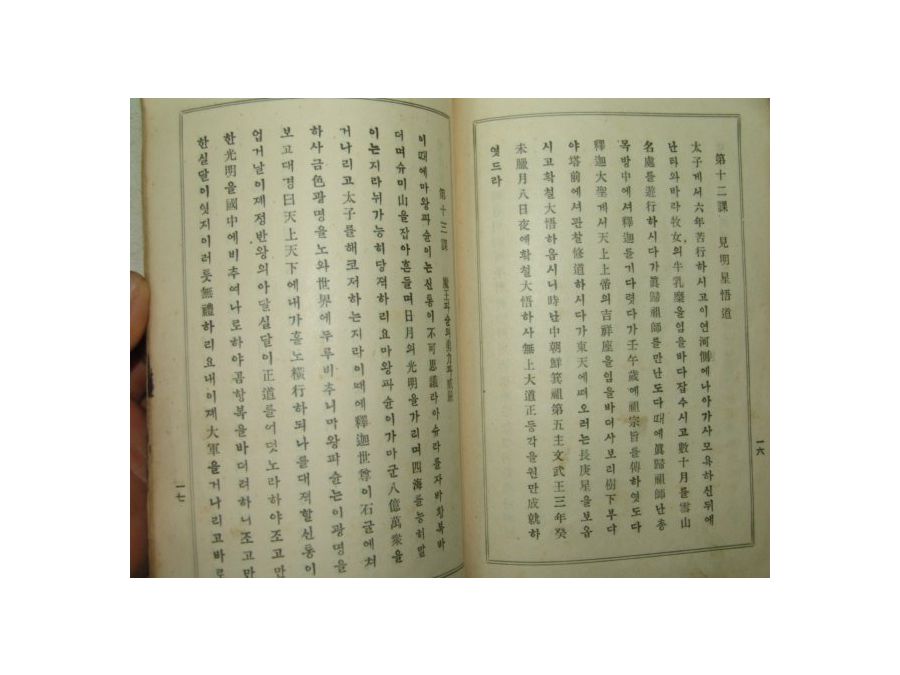 第十二課 見明星悟道
太子게서六年苦行하시고이연河側에나아가사모욕하신뒤에
난타와바라牧女의牛乳麋을임을바다잡수시고數十月를雪山
名處를遊行하시다가眞歸祖師를만난도다때에眞歸祖師난총
목방中에서釋迦를기다렷다가壬午歲에祖宗旨를傳하엿도다
釋迦大聖게서天上上帝의吉祥座을임을바더사보리樹下부다
야塔前에셔관찰修道하시다가東天에떠오러는長庚星을보읍
시고확철大悟하읍시니時난中朝鮮箕祖第五主文武王三年癸
未臘月八日夜에확철大悟하사無上大道正등각을원만成就하
엿드라
一六
第十三課 魔王파순의
이때에마왕파순이는신통이不可思議라아슈라를자바항복바
더며슈미山을잡아흔들며日月의光明을가리며四海를능히말
이는지라뉘가능히당젹하리요마왕파순이가마군八億萬衆을
거나리고太子를해코저하는지라이때에釋迦世尊이石굴에쳐
하사금色광명을노와世界에두루비추니마왕파슌는이광명을
보고대경曰天上天下에내가홀노橫行하되나를대젹할신통이
업거날이제정반왕의아달실달이正道를어덧노라하야조고만
한光明을國中에비추여나로하야곰항복을바더려하니조고만
한실달이엇지이러툿無禮하리요내이졔大軍을거나리고바로
一七